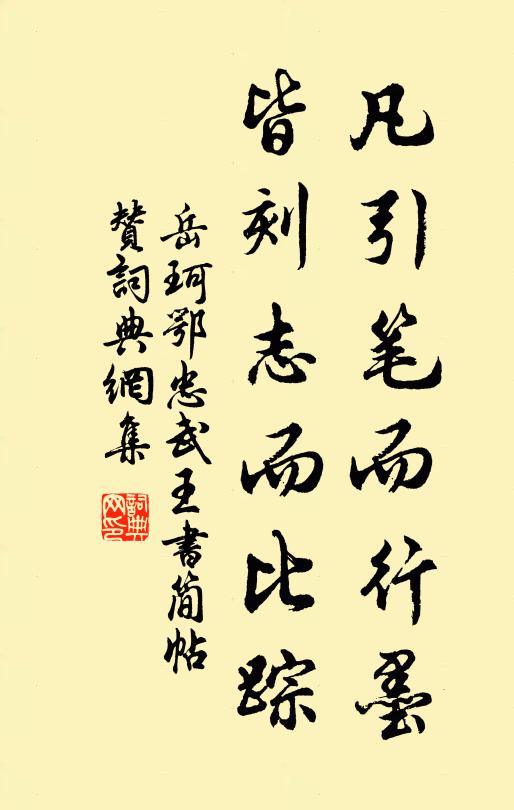 凡引笔而行墨
皆刻志而比踪
岳珂鄂忠武王书简帖
赞词典網集
詞典網印